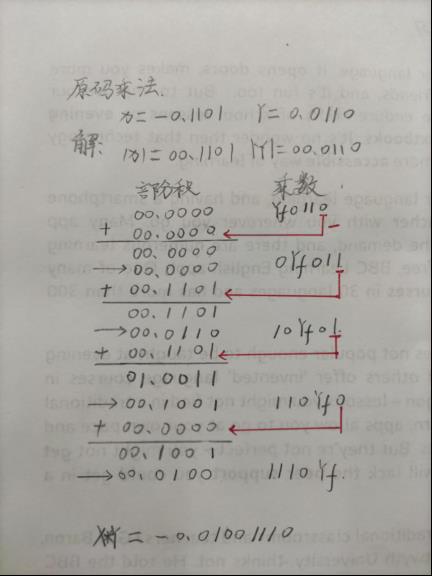 原码乘法.
x = -0.1101 Y = 0.0110
解: |x| = 00.1101 |Y| = 00.0110
部分积 乘数.
00.0000 Yf0110
+ 00.0000
00.0000
→ 00.0000 0Yf011
+ 00.1101
00.1101
→ 00.0110 10Yf01
+ 00.1101
01.0011
→ 00.1001 110Yf0
+ 00.0000
00.1001
→ 00.0100 1110Yf.
= -0.01001110